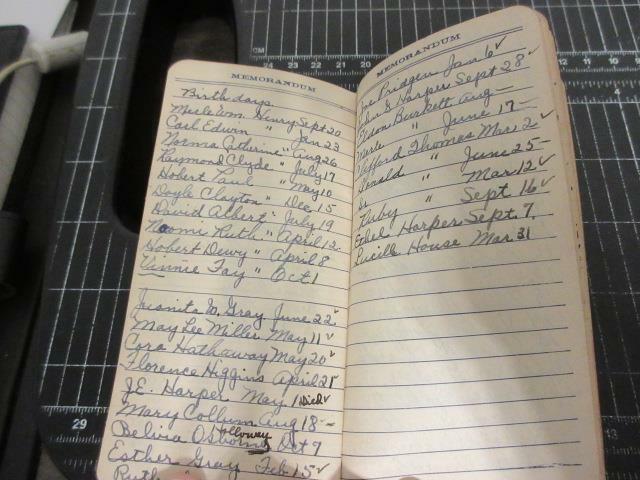 MEMORANDUM
Birthdays
Merle Wm. Henry Sept 20
Carl Edwin " Jan 23
Norma Catherine " Aug 26
Raymond Clyde " July 17
Hobert Paul " May 10
Doyle Clayton " Dec 15
David Albert " July 19
Naomi Ruth " April 12
Hobert Dewy " April 8
Vinnie Fay " Oct 1
Juanita G. Gray June 22 ✓
May Lee Miller May 11 ✓
Cora Hathaway May 20 ✓
Florence Higgins April 21 ✓
J.E. Harper May 1 Died ✓
Mary Collum Aug 18 -
Holloway
Belvia Osborne Oct 9
Esther Gray Feb 15 ✓
Ruth "
MEMORANDUM
Pridgen Jan 6 ✓
Harper Sept 28 ✓
Burkett Aug -
Merle " June 17 -
Clifford Thomas Mar 2 ✓
Donald " June 25 -
" Mar 12 ✓
Ruby " Sept 16 ✓
Ethel Harper Sept 7
Lucille House Mar 31
24
22
21
20
29
13